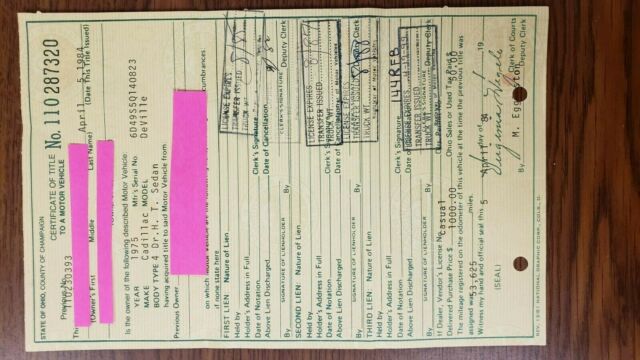 STATE OF OHIO, COUNTY OF CHAMPAIGN
CERTIFICATE OF TITLE
TO A MOTOR VEHICLE
No. 110287320
Previous No.
110230393
April 5, 1984
(Date This Title Issued)
(Owner's First Middle Last Name)
Is the owner of the following described Motor Vehicle
YEAR 1975 Mfr's Serial No 6D49S5Q140823
MAKE Cadillac MODEL DeVille
BODY TYPE 4 Dr.H. T. Sedan
having acquired title to said Motor Vehicle from
Previous Owner
if none state here
FIRST LIEN: Nature of Lien
Held by
Holder's Address in Full
Date of Notation Clerk's Signature
Above Lien Discharged Date of Cancellation
By
SIGNATURE OF LIENHOLDER CLERK'S SIGNATURE Deputy Clerk
SECOND LIEN: Nature of Lien
Held by
Holder's Address in Full
Date of Notation Clerk's Signature
Above Lien Discharged Date of Cancellation
By
SIGNATURE OF LIENHOLDER CLERK'S SIGNATURE Deputy Clerk
THIRD LIEN: Nature of Lien
Held by
Holder's Address in Full
Date of Notation Clerk's Signature
Above Lien Discharged
By
SIGNATURE OF LIENHOLDER Deputy Clerk
LICENSE EXPIRES
TRANSFER ISSUED
TRUCK WT.
LICENSE EXPIRES
TRANSFER ISSUED
TRUCK WT.
LICENSE EXPIRES
TRANSFER ISSUED
TRUCK WT.
If Dealer, Vendor's License No. casual
Delivered Purchase Price $ 1000.00 Ohio Sales or Used Tax Paid $ 50.00
The mileage registered on the odometer of this vehicle at the time the previous title was
assigned was 53,625 miles.
Witness my hand and official seal this 5 day of April 19 84
(SEAL)
Clerk of Courts
By M. Eggleston Deputy Clerk
REV. 1981 NATIONAL GRAPHIC CORP., COLS., O.